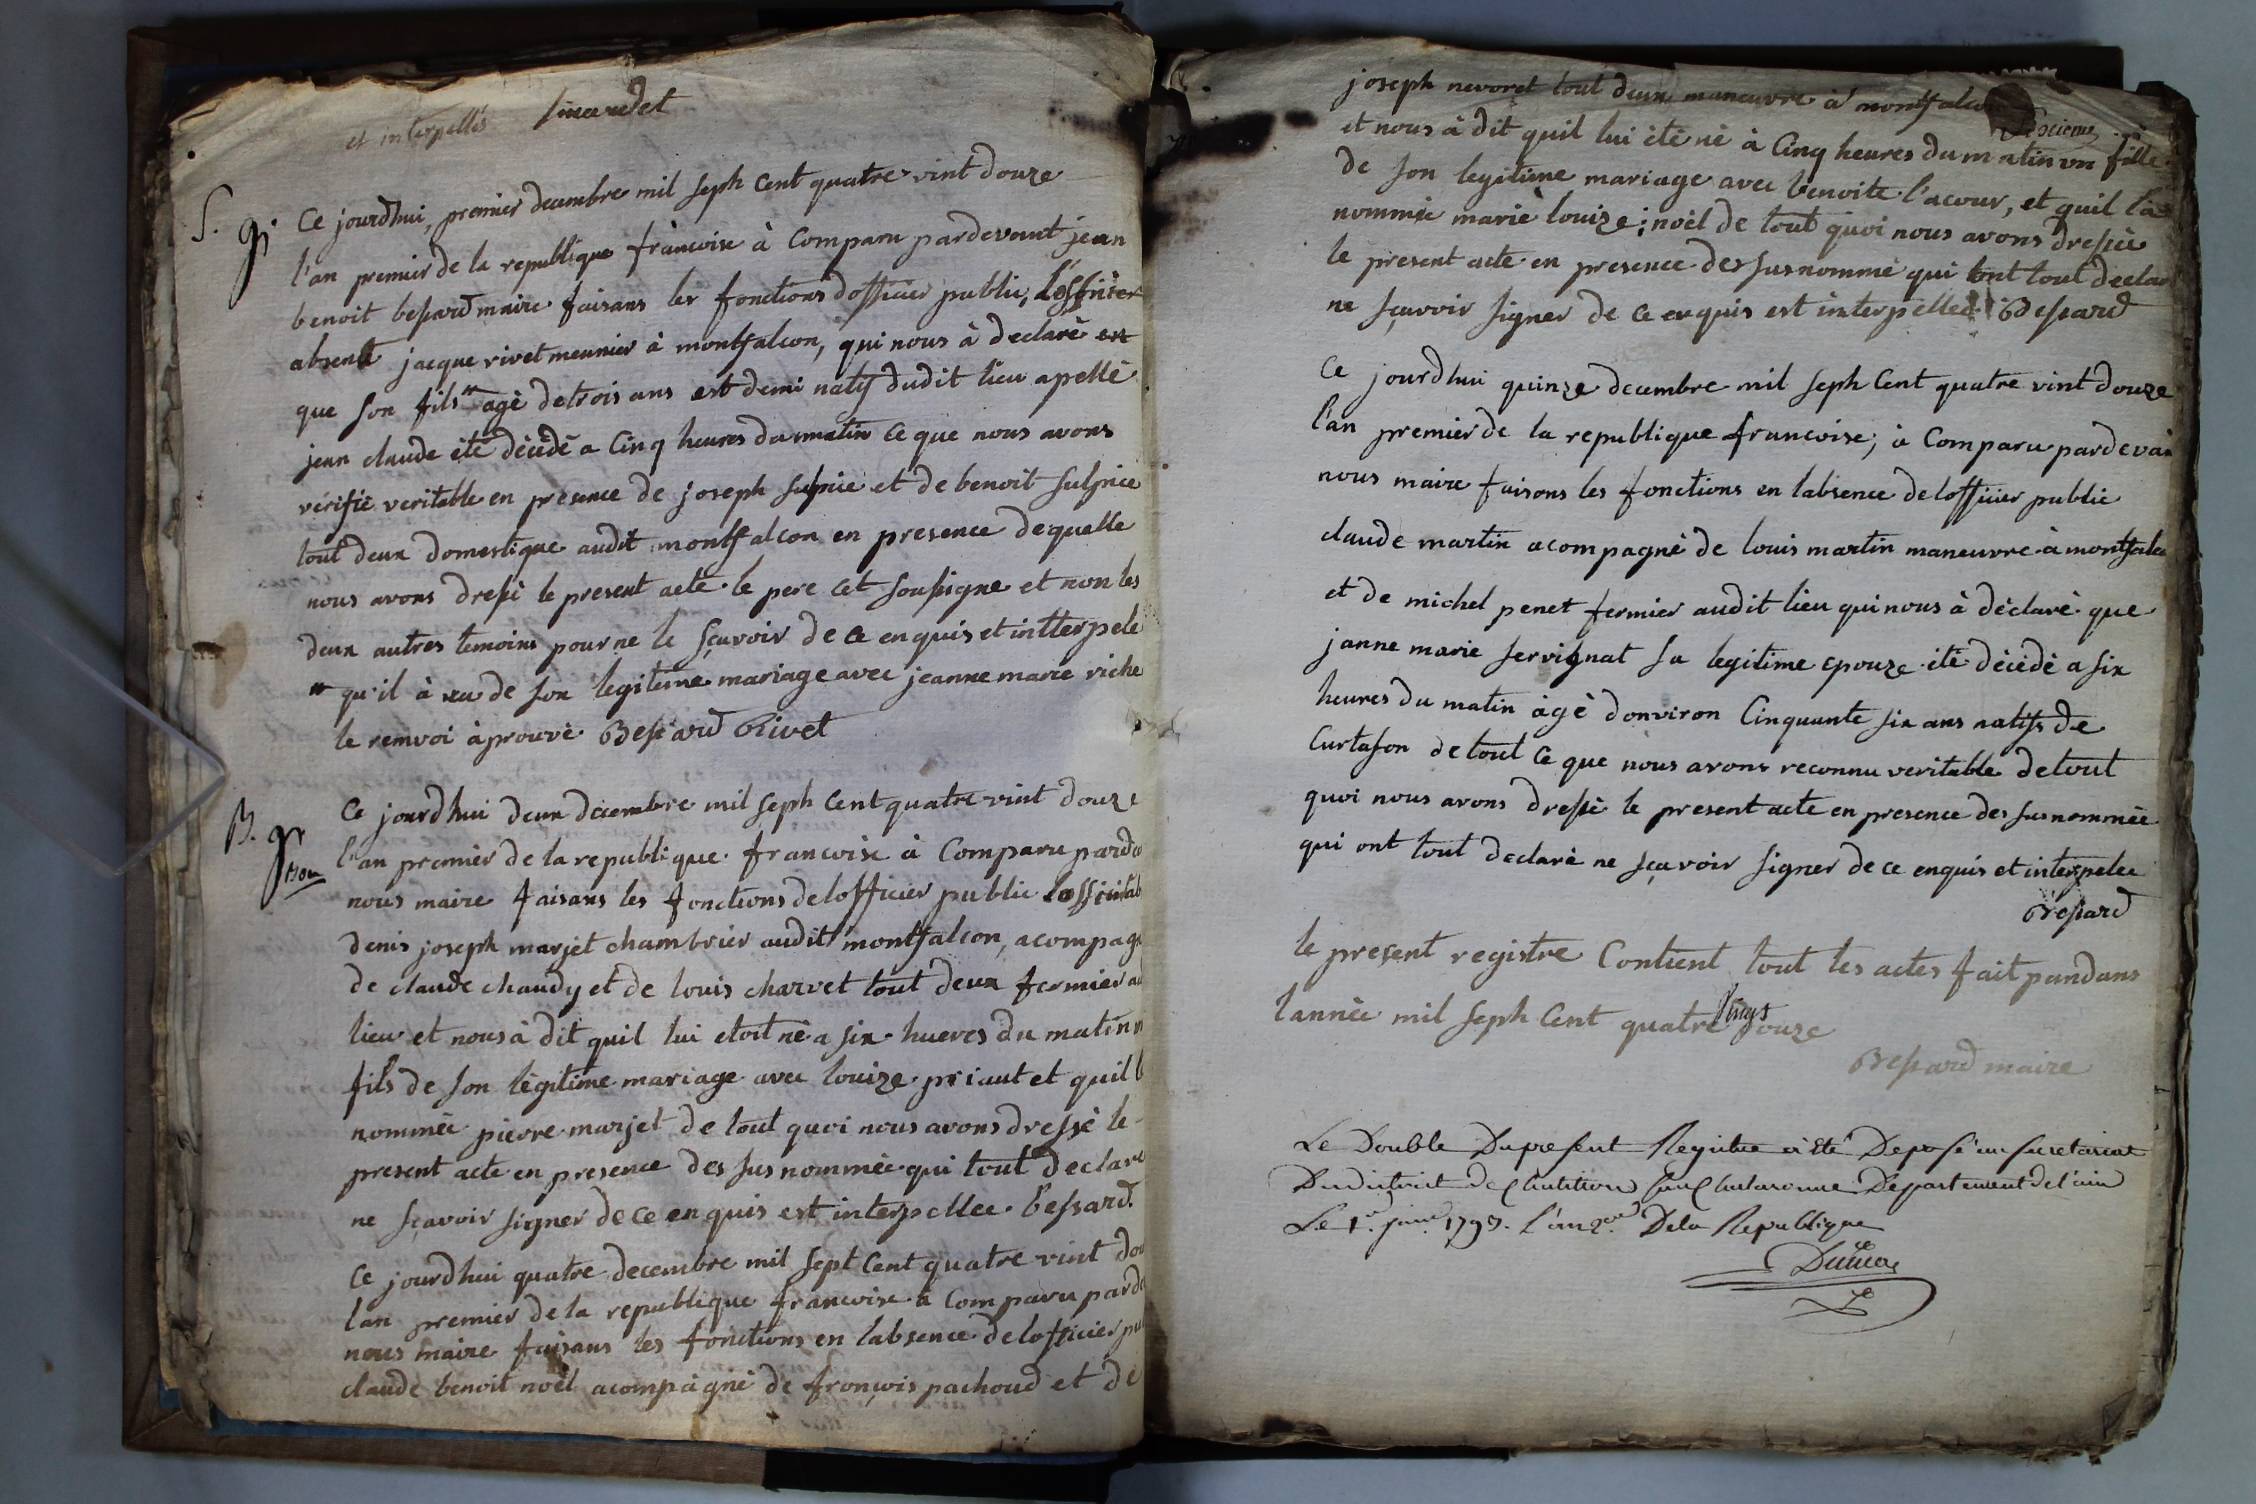 et interpellés
S. Ce jourdhui, premier decembre mil seph Cent quatre vint douze
l'an premier de la republique françoise à Comparu pardevant jean
benoit bessard maire faisans les fonctions dofficier public, l'officier
absent jacque rivet meunier à montfalcon, qui nous à declaré
que son fils agè de trois ans est demi natif dudit lieu apellè
jean claude étè dècèdè a Cinq heures du matin Ce que nous avons
vérifiè veritable en presence de joseph sulpice et de benoit sulpice
tout deux domestique audit montfalcon en presence dequelle
nous avons dressè le present acte le pere cet soussigne et non les
deux autres temoins pour ne le sçavoir de ce enquis et intterpele
qu'il à eu de son legitime mariage avec jeanne marie riche
le renvoi àprouvè Bessard Rivet
B. Ce jourdhui deux décembre mil seph Cent quatre vint douze
l'an premier de la republique francoise à Comparu parde
nous maire faisans les fonctions delofficier public
denis joseph marjet chambrier audit montfalcon, acompag
de claude chaudy et de louis charvet tout deux fermier au
lieu et nous à dit quil lui étoit nè a six hueres du matin
fils de son lègitime mariage avec louize priaut et quil l
nommèe pierre marjet de tout quoi nous avons dressè le
present acte en presence des sus nommèe qui tout declare
ne sçavoir signer de ce enquis est interpellee. bessard
Ce jourdhui quatre decembre mil sept Cent quatre vint dou
lan premier de la republique francoise à Comparu parde
nous maire faisans les fonctions en labsence delofficier pu
claude benoit noèl acompàgnè de françois pachoud et de
joseph nevoret tout deux maneuvre à montfalcon
et nous à dit quil lui étè nè à Cinq heures du matin un fille
de son legitime mariage avec benoite l'acour, et quil là
nommèe marie louize noèl de tout quoi nous avons dressèe
le present acte en presence des susnommè qui tout declar
ne sçavoir signer de ce enquis est interpellee Bessard
Ce jourdhui quinze decembre mil seph Cent quatre vint douze
l'an premier de la republique francoise, à Comparu pardevan
nous maire faisons les fonctions en labsence delofficier public
claude martin acompagnè de louis martin maneuvre à montfalco
et de michel penet fermier audit lieu qui nous à dèclarè que
janne marie servignat sa legitime epouze étè dècèdè a six
heures du matin àgè donviron Cinquante six ans natifs de
Curtafon de tout Ce que nous avons reconnu veritable de tout
quoi nous avons dressè le present acte en presence des susnommèe
qui ont tout declarè ne sçavoir signer de ce enquis et interpelee
Bessard
le present registre Contient tout les actes fait pandans
lannèe mil seph Cent quatre vings douze
Bessard maire
Le Double Du present Registre a été Deposé au secretariat
Du district de Chatillon sur Chalaronne Departement de l'ain
Le 1er. 1793. l'an 2e. De la Republique